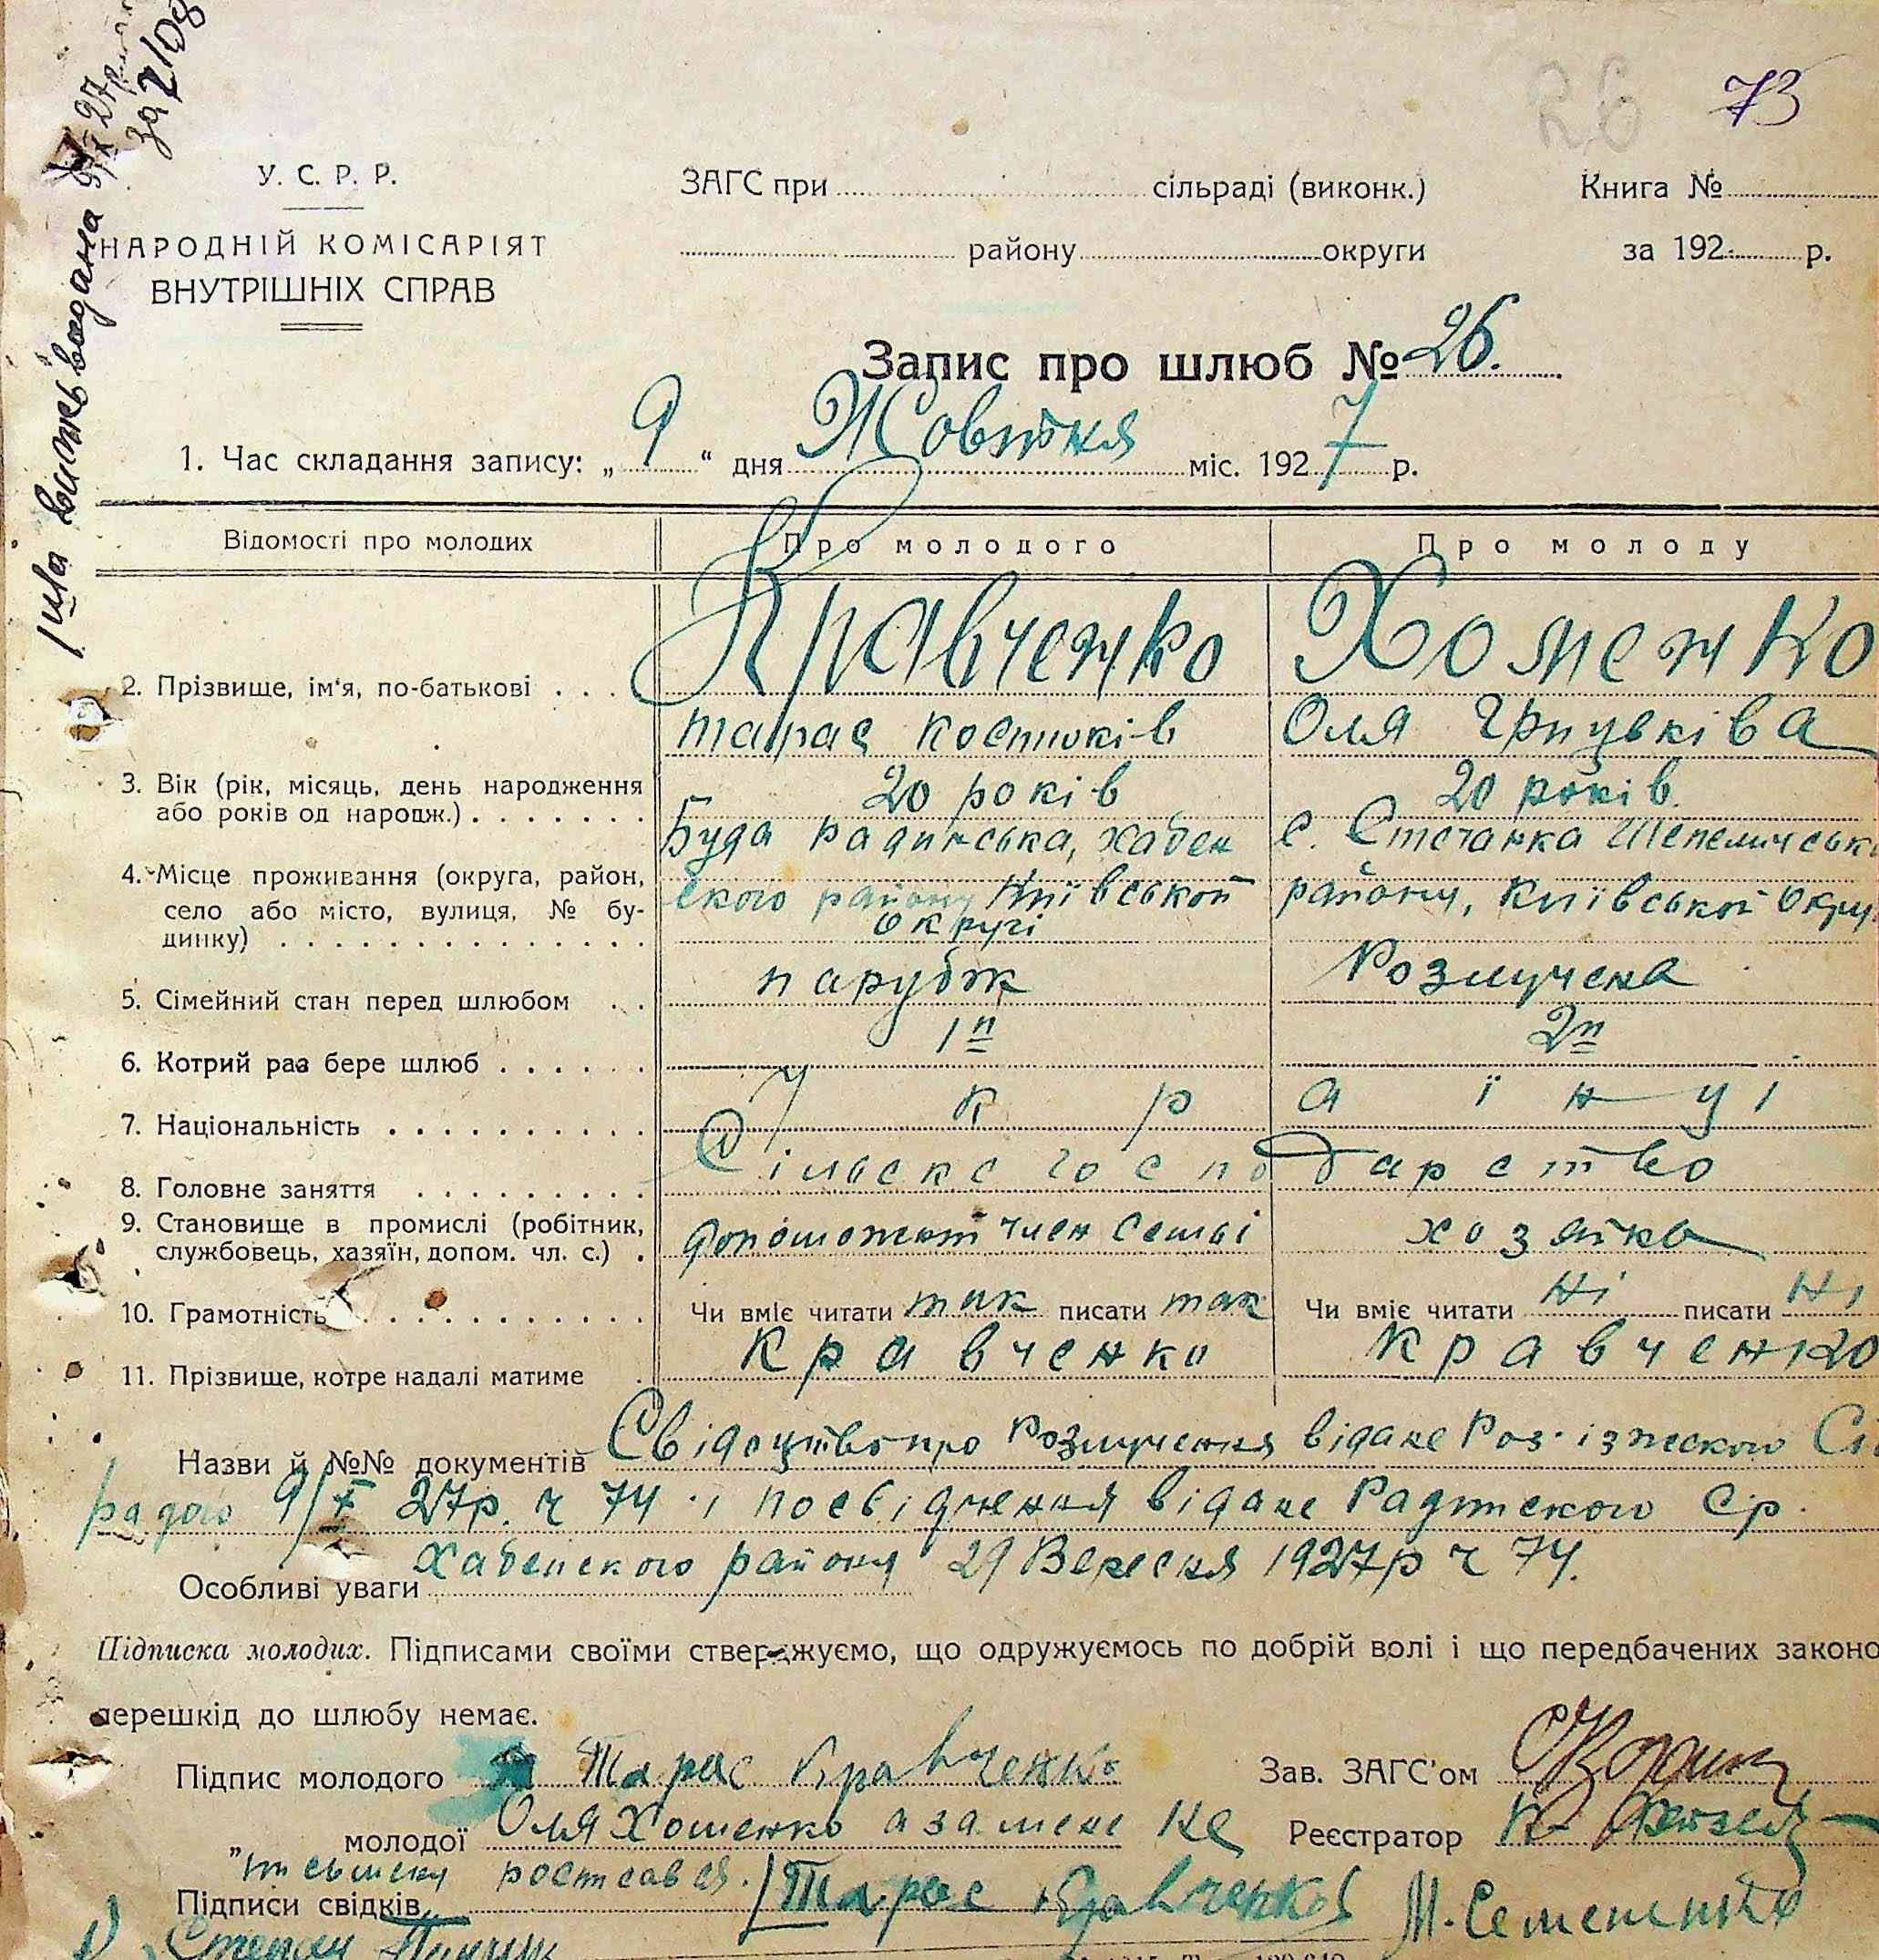 26 73
1 ша випись видана 9/X 27р за 2/08
У. С. Р. Р.
НАРОДНІЙ КОМІСАРІЯТ
ВНУТРІШНІХ СПРАВ
ЗАГС при сільраді (виконк.)
району округи
Книга №
за 192 р.
Запис про шлюб № 26.
1. Час складання запису: „ 9 “ дня Жовтня міс. 1927 р.
Відомості про молодих Про молодого Про молоду
2. Прізвище, ім‘я, по-батькові . . . Кравченко Хоменко
Тарас Костюків Оля Грицьківа
3. Вік (рік, місяць, день народження 20 років 20 років.
або років од народж.) . . . . . . .
Буда Радинська, Хабен с. Стечанка Шепелицьк
4. Місце проживання (округа, район, ского району Київськой району, Київськой Окру
село або місто, вулиця, № бу- Округі
динку) . . . . . . . . . . . . . . .
5. Сімейний стан перед шлюбом . . парубок Розлучена
6. Котрий раз бере шлюб . . . . . . 1й 2й
7. Національність . . . . . . . . . . У к р а ї н ц і
8. Головне заняття . . . . . . . . . Сільске господарство
9. Становище в промислі (робітник, член семьі хозяйка
службовець, хазяїн, допом. чл. с.) .
10. Грамотність . . . . . . . . . . . Чи вміє читати так писати так Чи вміє читати Ні писати Ні
11. Прізвище, котре надалі матиме . Кравченко Кравченко
Назви й №№ документів Свідоцтво про Розлучення відане Роз'їзжского Сі
радою 9/X 27р. ч 74 і посвідчення відане Радинского Ср.
Хабенского району 29 Вересня 1927р ч 74.
Особливі уваги
Підписка молодих. Підписами своїми стверджуємо, що одружуємось по добрій волі і що передбачених законо
перешкід до шлюбу немає.
Підпис молодого Тарас Кравченко Зав. ЗАГС‘ом
„ молодої Оля Хоменко а за мене не Реєстратор
письмену росписавсь. / Тарас Кравченко
Підписи свідків М. Сементко
1) Степан